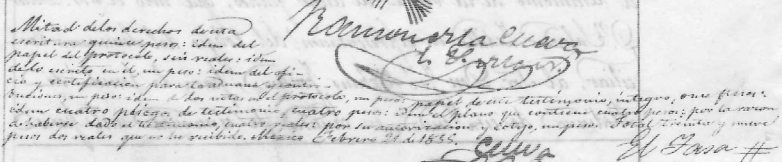 Mitad de los derechos de esta
Ramon de la Cueva
escritura quince pesos: idem del
papel del protocolo, seis reales: idem
de lo escrito en él, un peso: idem del ofi-
cio y certificacion para la aduana y contri-
buciones, un peso: idem de dos notas en el protocolo, un peso: papel de este testimonio, íntegro, once pesos:
idem cuatro pliegos de testimonio, cuatro pesos: idem el plano que contiene cuatro pesos: por la razon
de haberse dado el testimonio, cuatro reales: por su autorizacion y cotejo, un peso. Total treinta y nueve
pesos dos reales que no he recibido. México Febrero 25 de 1855.
Cueva